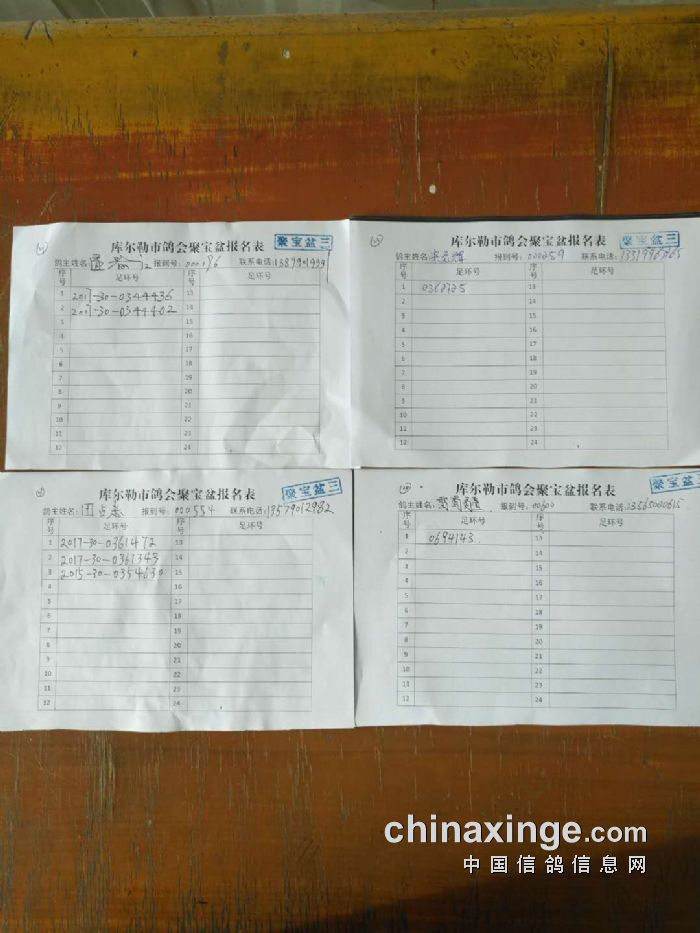 库尔勒市鸽会聚宝盆报名表 聚宝盆三
鸽主姓名: 报到号: 000186 联系电话:
序号 足环号 序号 足环号
1 2017-30-0344436 13
2 2017-30-0344402 14
3 15
4 16
5 17
6 18
7 19
8 20
9 21
10 22
11 23
12 24
库尔勒市鸽会聚宝盆报名表 聚宝盆三
鸽主姓名: 报到号: 000059 联系电话:
序号 足环号 序号 足环号
1 13
2 14
3 15
4 16
5 17
6 18
7 19
8 20
9 21
10 22
11 23
12 24
库尔勒市鸽会聚宝盆报名表 聚宝盆三
鸽主姓名: 报到号: 000554 联系电话: 13579012982
序号 足环号 序号 足环号
1 2017-30-0361472 13
2 2017-30-0361343 14
3 2015-30-0354630 15
4 16
5 17
6 18
7 19
8 20
9 21
10 22
11 23
12 24
库尔勒市鸽会聚宝盆报名表 聚宝盆三
鸽主姓名: 报到号: 00600 联系电话: 13565000615
序号 足环号 序号 足环号
1 0694143 13
2 14
3 15
4 16
5 17
6 18
7 19
8 20
9 21
10 22
11 23
12 24
chinaxinge.com
中国信鸽信息网